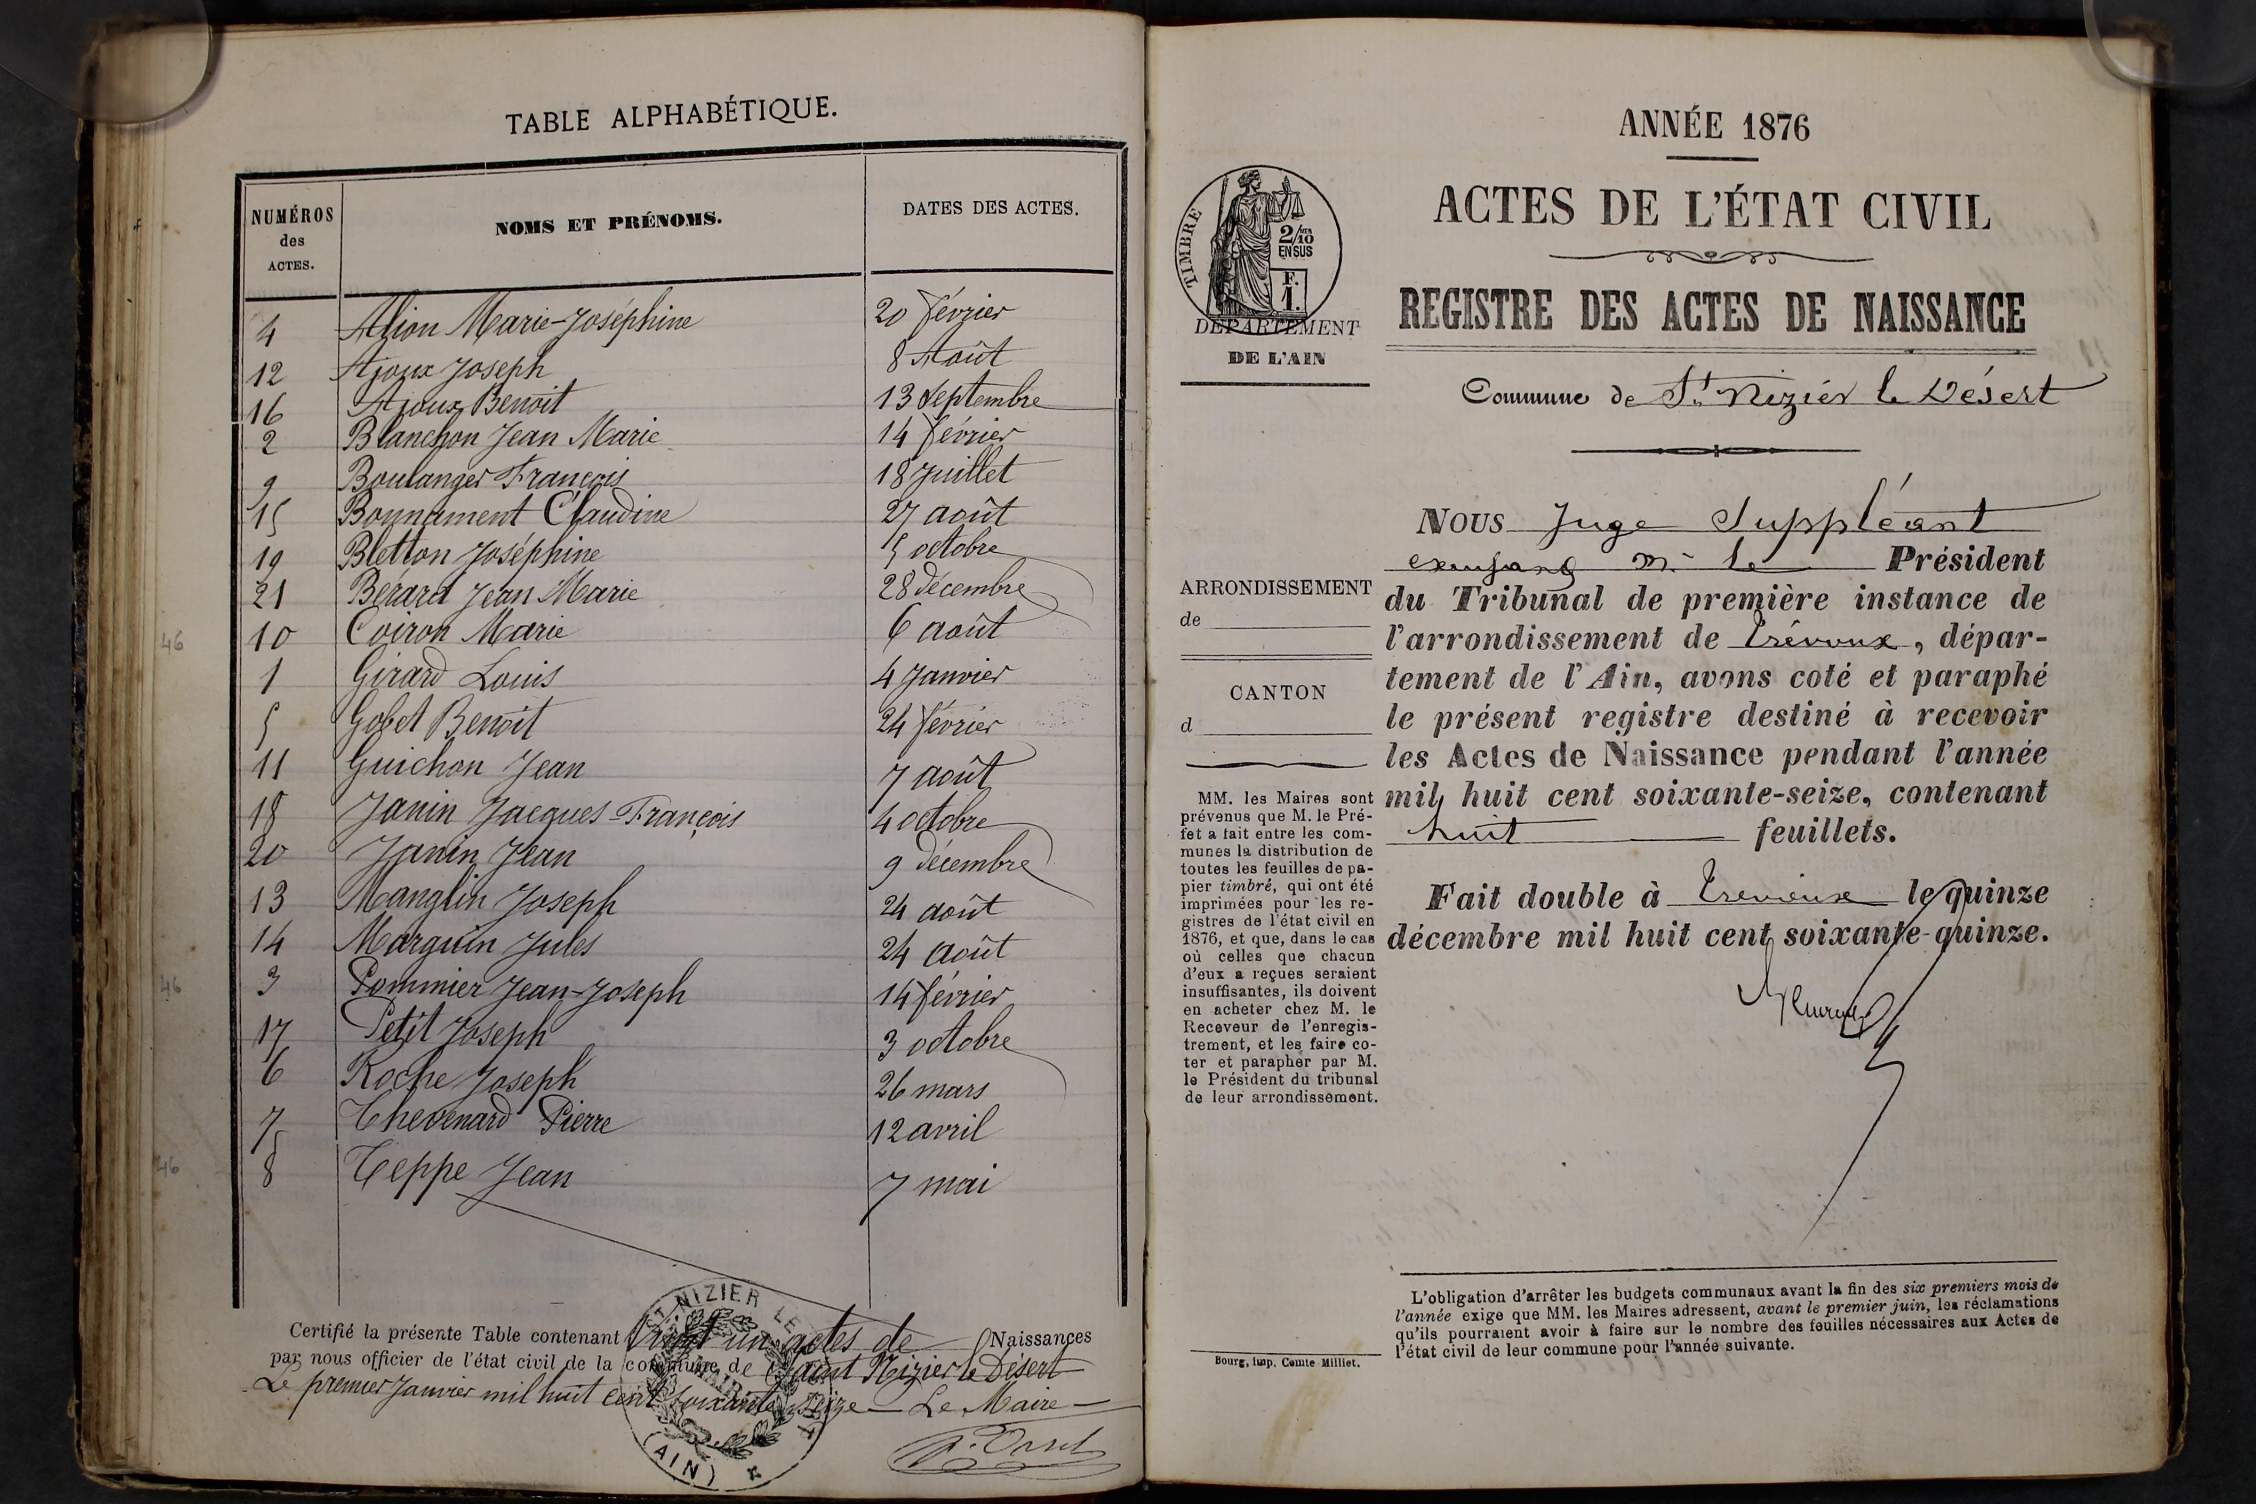 TABLE ALPHABÉTIQUE.
NUMÉROS des ACTES. NOMS ET PRÉNOMS. DATES DES ACTES.
4 Alion Marie-Joséphine 20 février
12 Ajoux Joseph 8 Août
16 Ajoux Benoit 13 Septembre
2 Blanchon Jean Marie 14 février
9 Boulanger François 18 Juillet
15 Bonnament Claudine 27 août
19 Bletton Joséphine 5 octobre
21 Bérard Jean Marie 28 décembre
46 10 Coiron Marie 6 août
1 Girard Louis 4 Janvier
5 Gobet Benoît 24 février
11 Guichon Jean 7 août
18 Janin Jacques-François 4 octobre
20 Janin Jean 9 décembre
13 Manglin Joseph 24 août
14 Marguin Jules 24 août
46 3 Pommier Jean-Joseph 14 février
17 Petit Joseph 3 octobre
6 Roche Joseph 26 mars
7 Thevenard Pierre 12 avril
46 8 Teppe Jean 7 mai
Certifié la présente Table contenant Vingt un actes de Naissances
par nous officier de l'état civil de la commune de Saint Nizier le Désert
Le premier Janvier mil huit cent soixante seize — Le Maire —
ST NIZIER LE
MAIRIE
(AIN)
ANNÉE 1876
ACTES DE L'ÉTAT CIVIL
REGISTRE DES ACTES DE NAISSANCE
TIMBRE
2/10
EN SUS
F.
1.
DÉPARTEMENT
DE L'AIN
Commune de St Nizier le Désert
Nous Juge Suppléant
m. le Président
du Tribunal de première instance de
l'arrondissement de Trévoux, dépar-
tement de l'Ain, avons coté et paraphé
le présent registre destiné à recevoir
les Actes de Naissance pendant l'année
mil huit cent soixante-seize, contenant
huit feuillets.
Fait double à Trévoux le quinze
décembre mil huit cent soixante-quinze.
ARRONDISSEMENT
de
CANTON
d
MM. les Maires sont
prévenus que M. le Pré-
fet a fait entre les com-
munes la distribution de
toutes les feuilles de pa-
pier timbré, qui ont été
imprimées pour les re-
gistres de l'état civil en
1876, et que, dans le cas
où celles que chacun
d'eux a reçues seraient
insuffisantes, ils doivent
en acheter chez M. le
Receveur de l'enregis-
trement, et les faire co-
ter et parapher par M.
le Président du tribunal
de leur arrondissement.
Bourg, imp. Comte Milliet.
L'obligation d'arrêter les budgets communaux avant la fin des six premiers mois de
l'année exige que MM. les Maires adressent, avant le premier juin, les réclamations
qu'ils pourraient avoir à faire sur le nombre des feuilles nécessaires aux Actes de
l'état civil de leur commune pour l'année suivante.